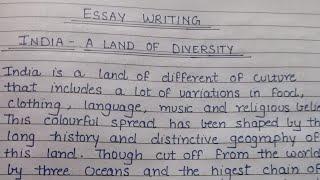 ESSAY WRITING
INDIA - A LAND OF DIVERSITY
India is a land of different of culture
that includes a lot of variations in food,
clothing, language, music and religious belie
This colourful spread has been shaped by the
long history and distinctive geography of
this land. Though cut off from the world
by three oceans and the higest chain of